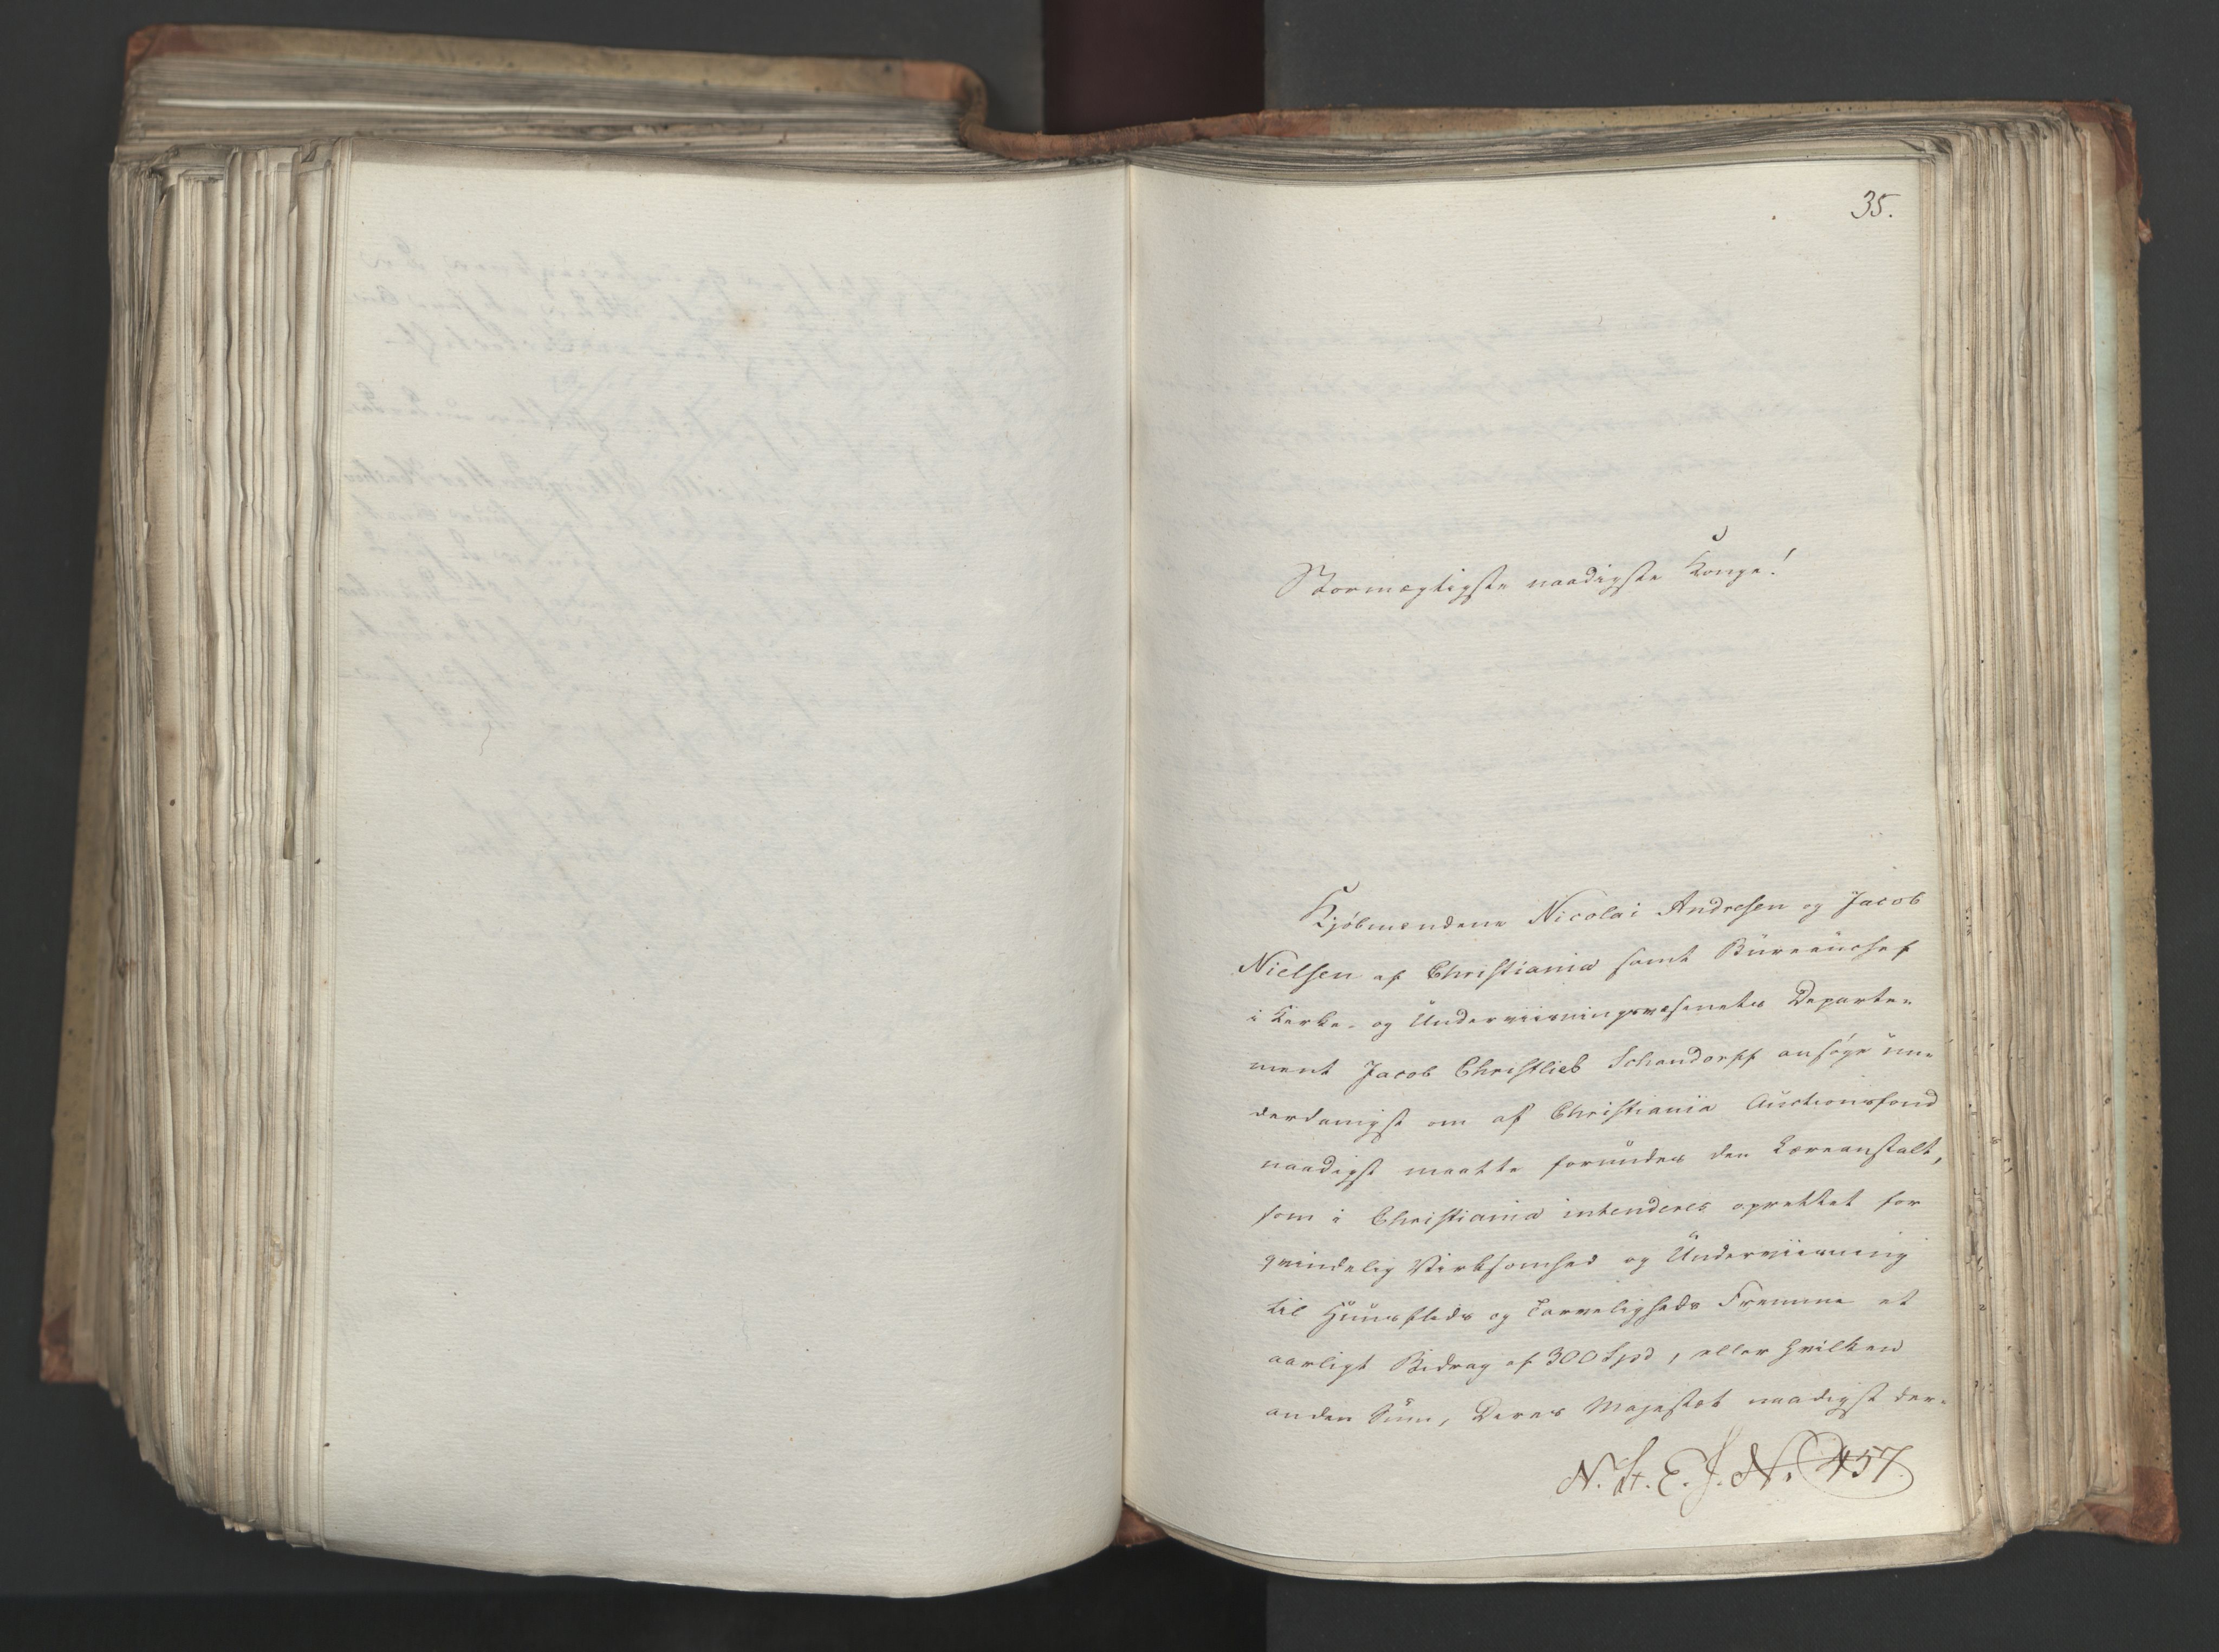 35.
Stormægtigste naadigste Konge!
Kjöbmændene Nicolai Andresen og Jacob
Nielsen af Christiania samt Büreauchef
i Kirke- og Underviisningsvæsenets Departe-
ment Jacob Christlieb Schandorff ansøge un-
derdanigst om af Christiania Auctionsfond
naadigst maatte forundes den Læreanstalt,
som i Christiania intenderes oprettet for
qvindelig Virksomhed og Underviisning
til Huusflids og Tarveligheds Fremme et
aarligt Bidrag af 300 Spd, eller hvilken
anden Sum, Deres Majestæt naadigst der-
N. St. E. J. N. 457.